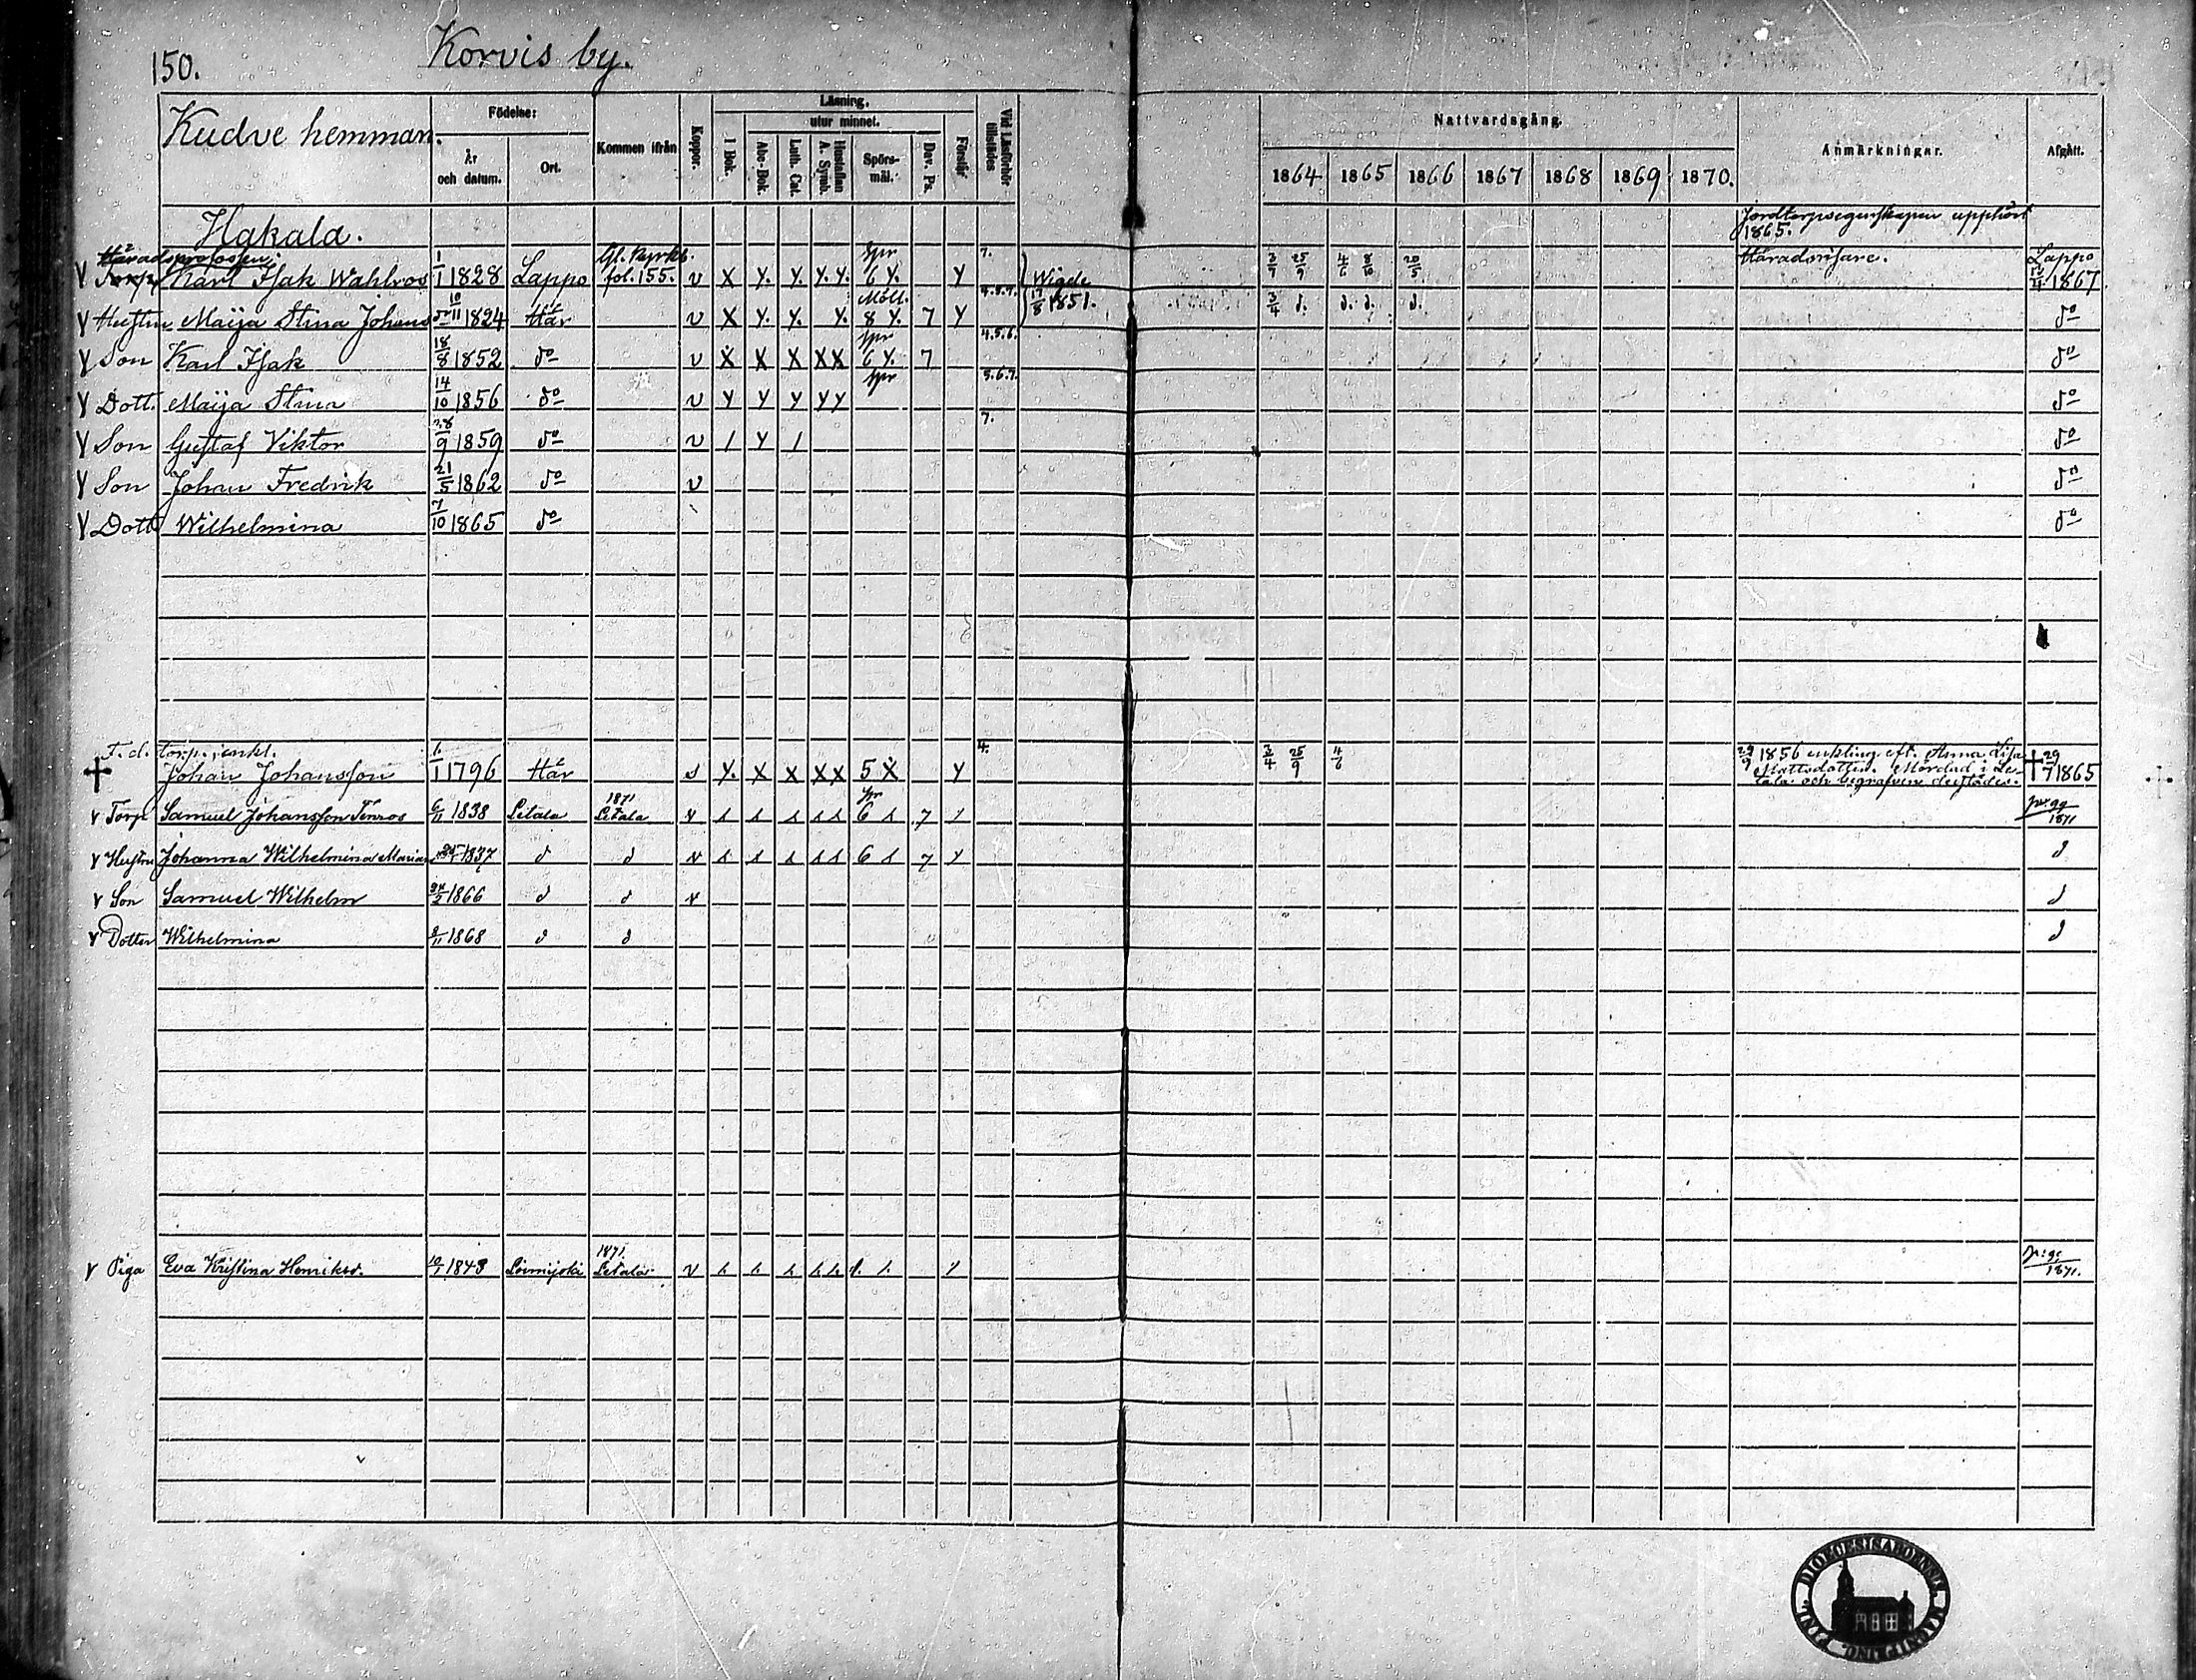 150. Korvis by.
Kudve hemman.
Födelse:
År och datum.
Ort.
Kommen ifrån
Koppor.
Läsning,
utur minnet.
I Bok.
Abc-Bok.
Luth. Cat.
Hustaflan A. Symb.
Spörs-mål.
Dav. Ps.
Förstår
Vid Läsförhör tillstädes
Nattvardsgång.
1864 1865 1866 1867 1868 1869 1870.
Anmärkningar.
Afgått.
Hakala. Jordtorpsegenskapen upphört
1865.
Häradsprofossen: Gl. Kyrkb. Spr 7.
Torp. Karl Isak Wahlros 1/1 1828 Lappo fol. 155. v X Y. Y. Y. Y. 6 Y. Y Wigde 17/8 1851. 3/4 25/9 4/6 8/10 20/5 Häradsvisare. Lappo 1867
Hustru Maija Stina Johans 1824 Här v X Y. Y. Y. 8 Y. 7 Y 3/4 d. d. d. d. do
Son Karl Isak 18/8 1852 do v X X X X X 6 Y. 7 4.5.6. do
Dott. Maija Stina 14/10 1856 do v Y Y Y Y Y Spr 5.6.7. do
Son Gustaf Viktor 28/9 1859 do v / Y / 7. do
Son Johan Fredrik 21/5 1862 do v do
Dott Wilhelmina 7/10 1865 do do
F. d. torp., enkl.
Johan Johansson 1/1 1796 Här Y. X X X X 5 X Y 4. 3/4 25/9 4/6 29/9 1856 enkling eft. Anna Lisa
Mattsdotter. Mördad i Le-
tala och begrafven derstädes. † 29/7 1865
Torp Samuel Johansson Tenros 6/11 1838 Letala 1871 Letala v 6 7 pr. 99/1871
Hustru Johanna Wilhelmina Marian 1837 d d v 6 7 Y d
Son Samuel Wilhelm 24/5 1866 d d v d
Dotter Wilhelmina 8/11 1868 d d d
Piga Eva Kristina Henriksd. 1843 Loimijoki 1871. Letala v 1871.